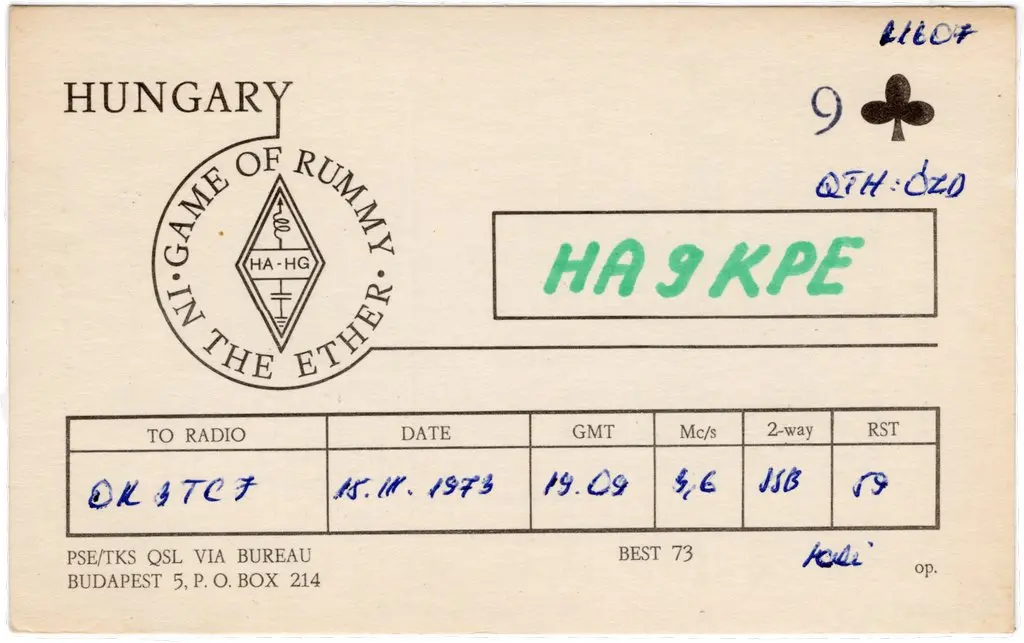 HUNGARY
9
QTH: ÓZD
GAME OF RUMMY
IN THE ETHER
HA-HG
HA9KPE
TO RADIO DATE GMT Mc/s 2-way RST
OK3TCF 15.III.1973 19.09 3,6 SSB 59
PSE/TKS QSL VIA BUREAU BEST 73
BUDAPEST 5, P. O. BOX 214 op.